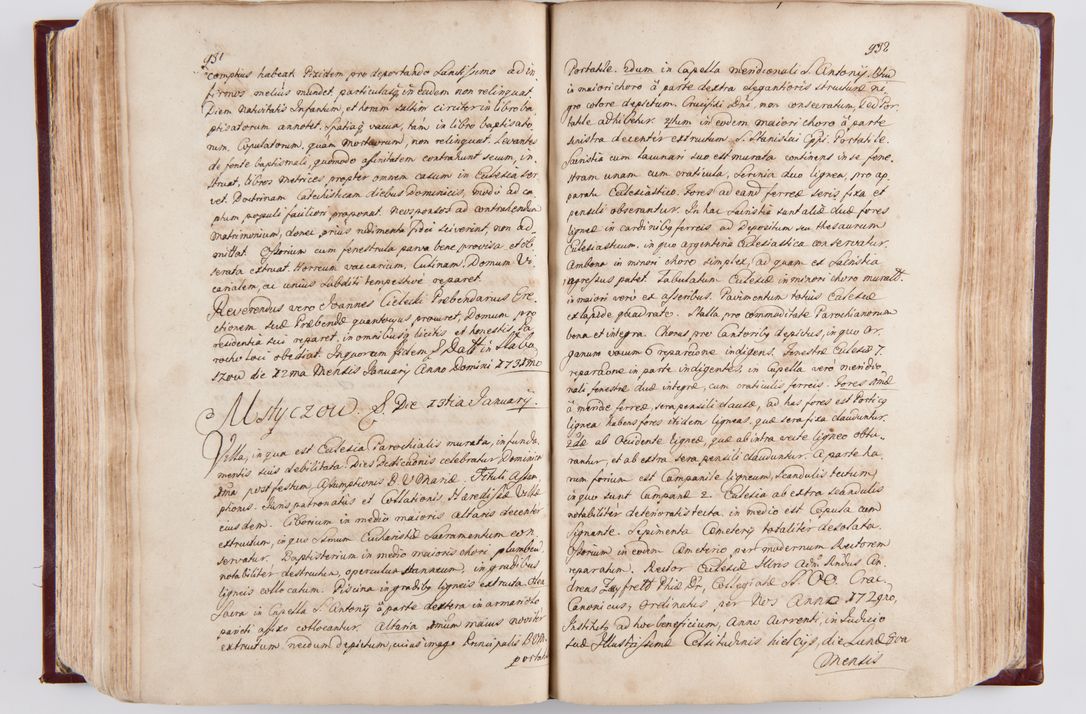 931
comptius habeat. Pixidem pro deportando Sanctissimo ad in
firmos melius mundet, particulasq; in eadem non relinquat.
Diem Nativitatis Infantium, et horam saltim circiter in libro ba
ptisatorum annotet. Spatiaq; vacua, tam in libro baptisato,
rum, Copulatorum, quam Mortuorum, non relinquat. Levantes
de fonte baptismali, quomodo afinitatem contrahunt secum, in,
struat, libros metrices propter omnem casum in Ecclesia ser
vet. Doctrinam Catechisticam diebus Dominicis, modo ad ca
ptum populi faciliori proponat. Neosponsos ad contrahendum
Matrimonium, donec prius rudimenta fidei sciverint, non ad,
mittat. Ostorium cum fenestrula parva bene provisa et ob
serata extruat. Horreum vaccarium, Culinam, Domum Vi
carialem, ac unius Subditi tempestive reparet.
Reverendus vero Joannes Cielecki Præbendarius Ere,
ctionem suæ Præbendæ quantocius procuret, Domum pro
residentia sui reparet, in omnibusq; licitis et honestis Pa
rocho loci obediat. In quorum fidem S. Datt in Slabo
szow die 12ma Mensis January Anno Domini 1731mo
Mstyczow. S. Die 13tia January.
Villa, in qua est Ecclesia Parochialis murata, in funda
mentis suis debilitata. Dies Dedicationis celebratur Dominica
ima post festum Assumptionis B. V. Mariæ. Tituli Assum
ptionis. Juris patronatus et Collationis, Hæredis Villæ
eiusdem. Ciborium in medio maioris altaris decenter
extructum, in quo Ssmum Eucharistiæ Sacramentum con
servatur. Baptisterium in medio maioris chori plumbeum
notabiliter destructum, operculum stanneum, in gradibus
ligneis collocatum. Piscina in gradib9 ligneis extructa. Olea
Sacra in Capella S. Antonij â parte dextera in armariolo
parieti affixo collocantur. Altaria imum maius noviter
extructum, necdum depictum, cuius imago Principalis B. V. M.
portatile
932
Portatile. 2dum in Capella meridionali S. Antonij. 3tiu
in maiori choro â parte dextra elegantioris structuræ ni,
gro colore depictum. Crucifixi Dni, non consecratum, sed Por
tatile adhibetur. 4tum in eodem maiori choro â parte
sinistra decenter extructum S. Stanislai Eppi. Portatile.
Sacristia cum lacunari suo est murata continens in se fene
stram unam cum craticula, Scrinia duo lignea, pro ap,
paratu Ecclesiastico. Fores ad eam ferreæ seris fixa et
pensili obserantur. In hac Sacristia sunt aliæ duæ fores
ligneæ in cardinib9 ferreis ad Depositum seu thesaurum
Ecclesiasticum, in quo argenteria Ecclesiastica conservatur.
Ambona in minori choro simplex, ad quam ex Sacristia
agressus patet. Tabulatum Ecclesiæ in minori choro muratt.
in maiori vero ex asseribus. Pavimentum totius Ecclesiæ
ex lapide quadrato. Stalla pro commoditate Parochianorum
bona et integra. Chorus pro Cantorib9 depictus, in quo or,
ganum vocum 6 reparatione indigens. Fenestræ Ecclesiæ 7.
reparatione in parte indigentes, in Capella vero meridio
nali fenestræ duæ integræ, cum craticulis ferreis. Fores imæ
â meridie ferreæ, sera pensili clausæ, ad has fores est Portic9
lignea habens fores itidem ligneas, quæ sera fixa clauduntur.
2dæ ab Occidente ligneæ, quæ ab intra vecte ligneo obtu,
rantur, et ab extra sera pensili clauduntur. A parte ha
rum forium est Campanile ligneum, scandulis tectum
in quo sunt Campanæ 2. Ecclesia ab extra scandulis
notabiliter deterioratis tecta. in medio est Cupula cum
signante. Sepimenta Cæmeterij totaliter desolata.
Ostorium in eodem Cæmeterio, per modernum Rectorem
reparatum. Rector Ecclesiæ Illris Adm. Rndus An,
dreas Zayfrett Phiæ Dr, Collegiatæ S. OO. Crac.
Canonicus, Ordinatus per Nos Anno 1729no,
Institut9 ad hoc beneficium, Anno Currenti, in Judicio
suæ Illustrissimæ Celsitudinis Kielcijs, die Lunæ 8va
Mensis